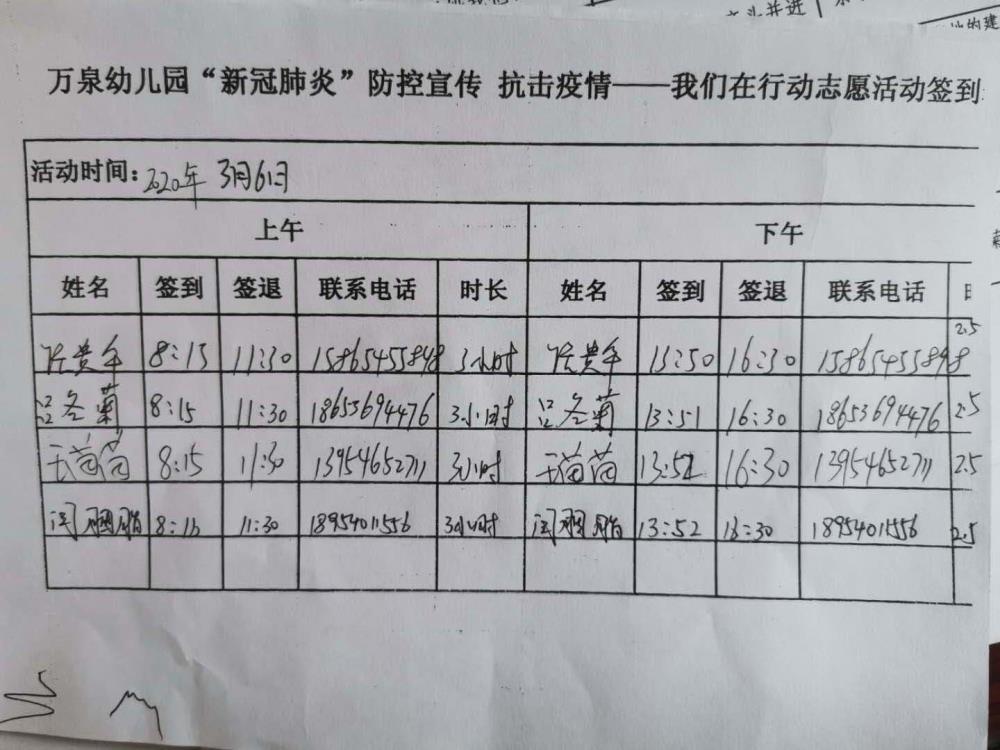 万泉幼儿园“新冠肺炎”防控宣传 抗击疫情——我们在行动志愿活动签到
活动时间：2020年 3月6日
上午 下午
姓名 签到 签退 联系电话 时长 姓名 签到 签退 联系电话
8:15 11:30 15865455898 3小时 13:50 16:30 15865455898 2.5
吕冬菊 8:15 11:30 18653694476 3小时 吕冬菊 13:51 16:30 18653694476 2.5
8:15 11:30 13954652711 3小时 13:52 16:30 13954652711 2.5
8:16 11:30 18954011556 3小时 13:52 16:30 18954011556 2.5